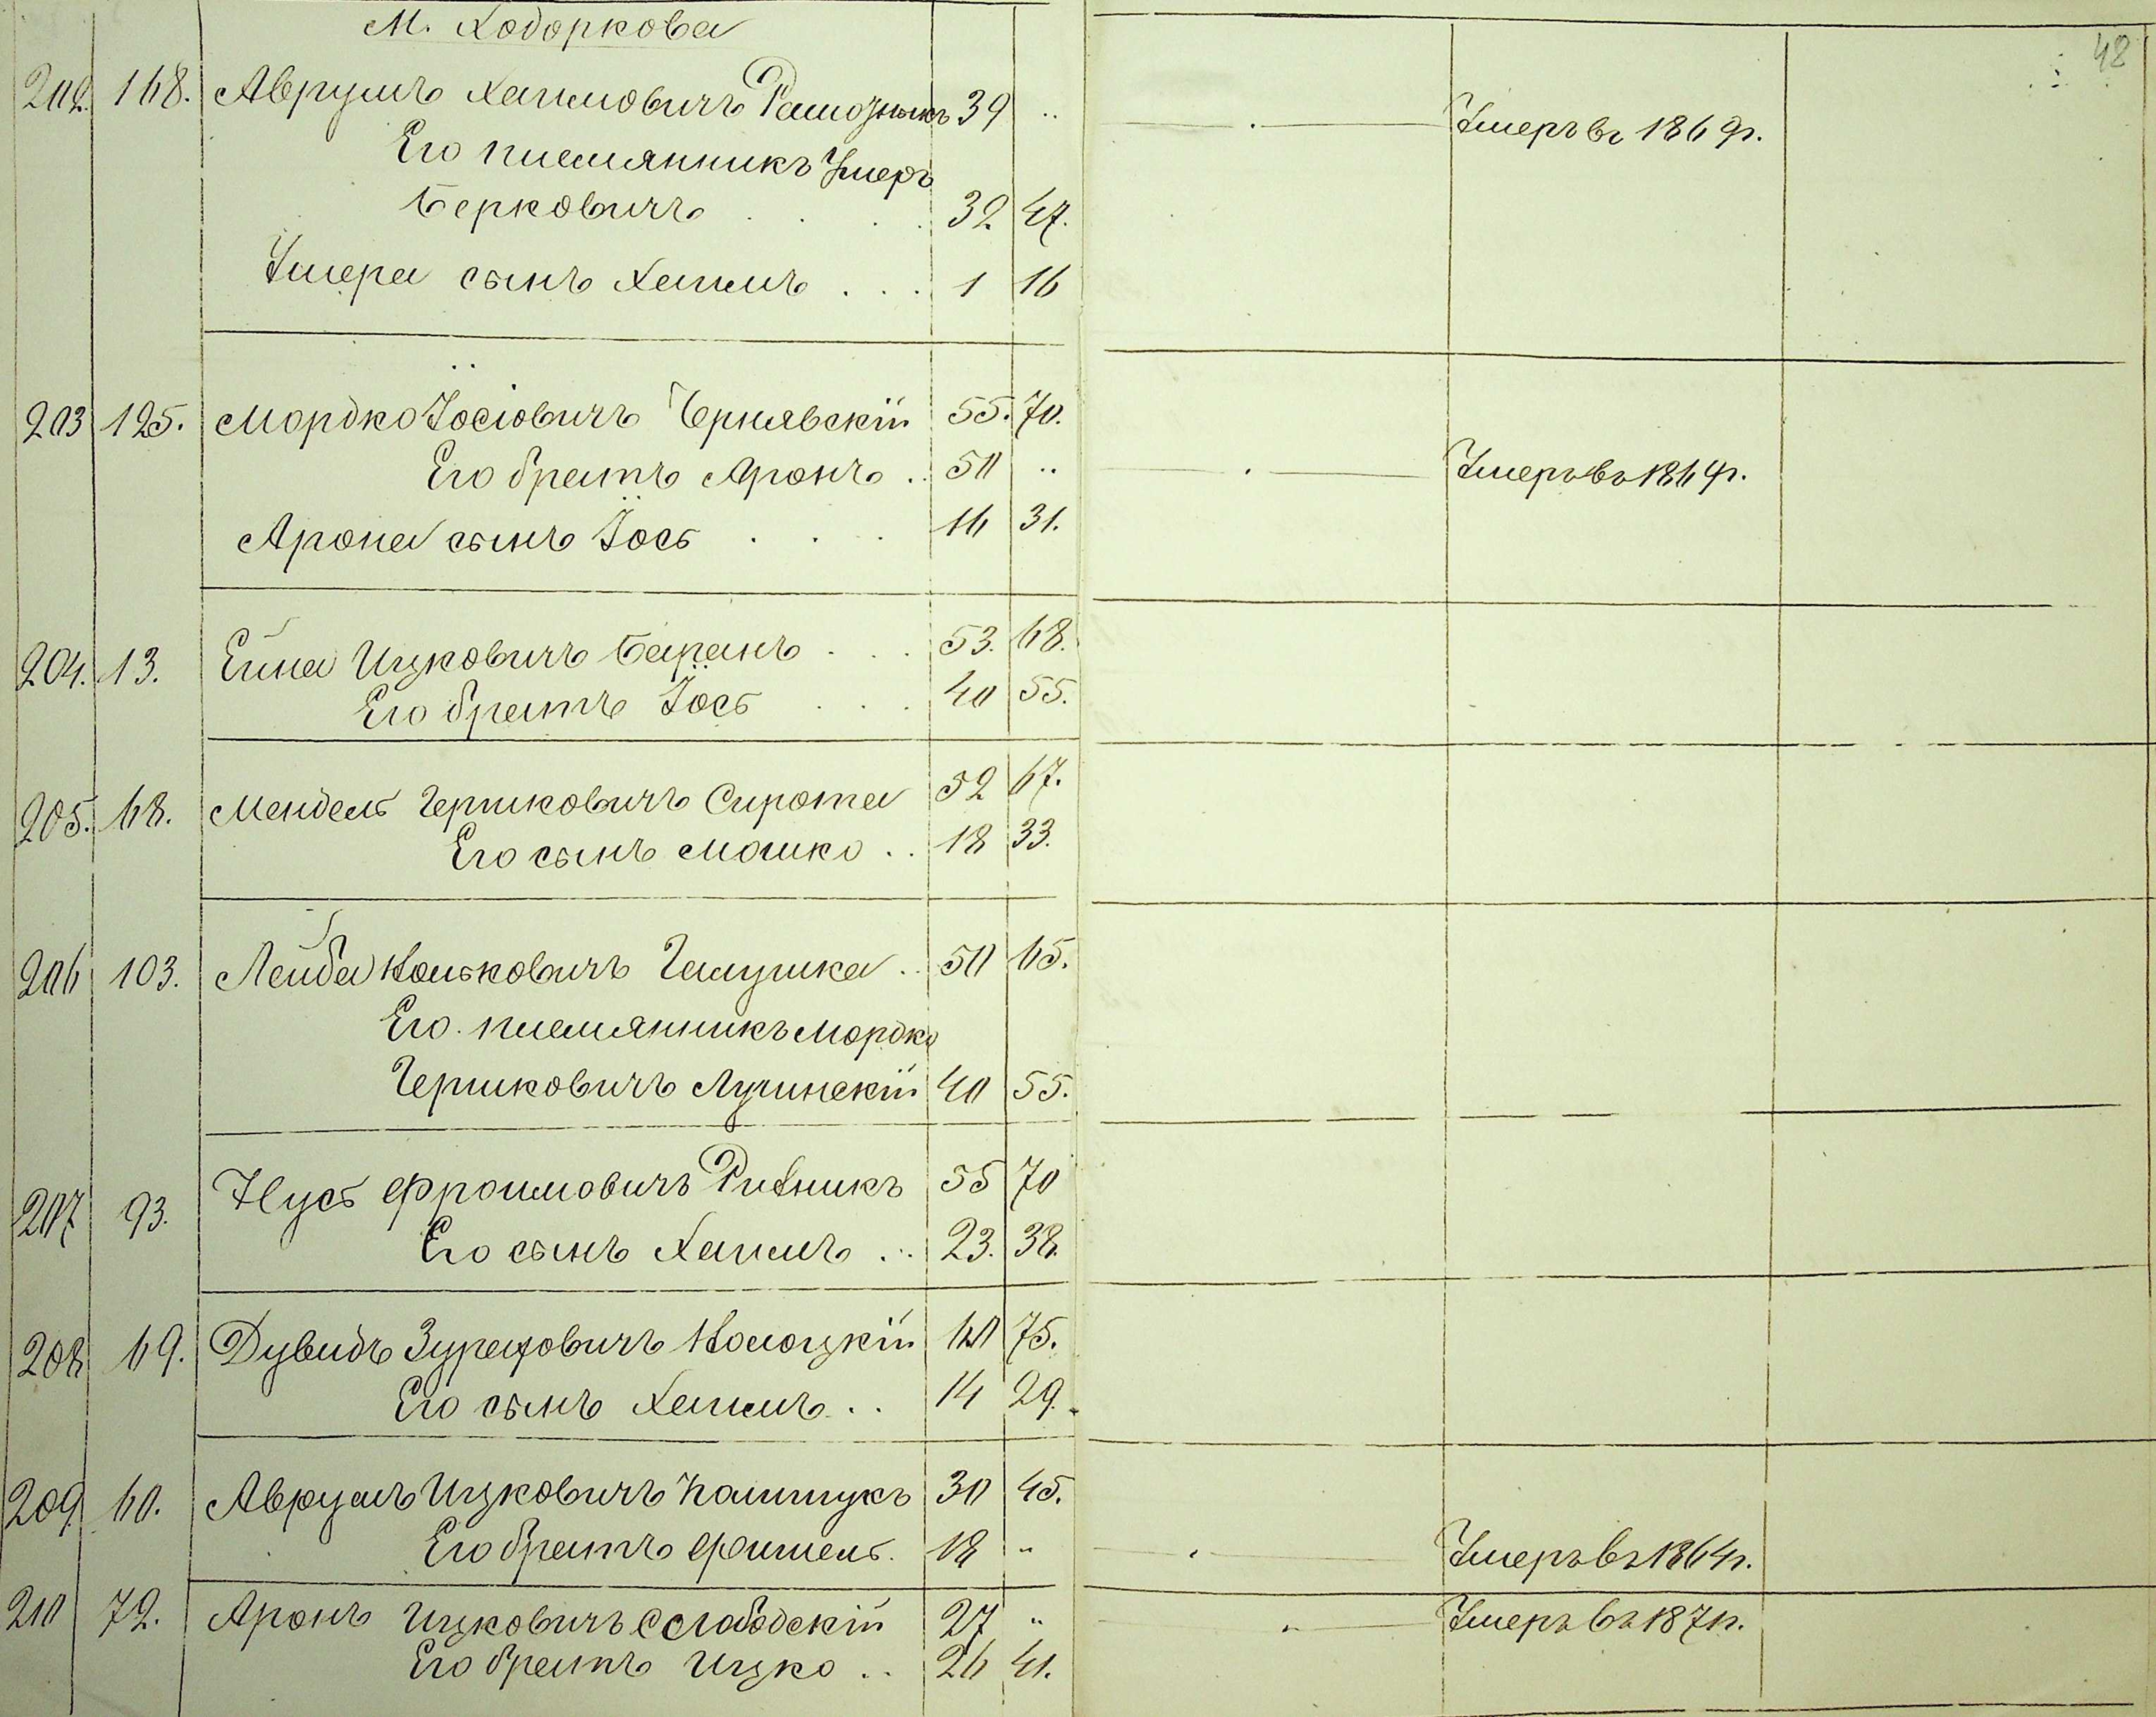 М. Ходоркова
48
202. 168. Аврумъ Хаимовичъ 39 .. Умеръ въ 1869 г.
Его племянникъ Умеръ
Берковичъ . . . 32 47.
Умера сынъ Хаимъ . . . 1 16
203 125. Мордко Іосіовичъ Чернявскій 55. 70.
Его братъ Аронъ .. 50 .. Умеръ въ 1864 г.
Арона сынъ Іось . . . 16 31.
204. 13. Ейна Ицковичъ Баранъ . . . 53. 68.
Его братъ Іось . . . 40 55.
205. 68. Мендель Гершковичъ Сирота 52 67.
Его сынъ Мошко . . 18 33.
206 103. Лейба Ноньковичъ Галушка .. 50 65.
Его племянникъ Мордко
Гершковичъ Лучинскій 40 55.
207 93. Нусь Фроимовичъ Ритникъ 55 70
Его сынъ Хаимъ ... 23. 38.
208 69. Дувидъ Зуреховичъ 60 75.
Его сынъ Хаимъ . . 14 29.
209. 60. Аврумъ Ицковичъ 30 45.
Его братъ Фишель. 18 " Умеръ въ 1864 г.
210 72. Аронъ Ицковичъ Слободскій 27 " Умеръ въ 1871 г.
Его братъ Ицко .. 26 41.